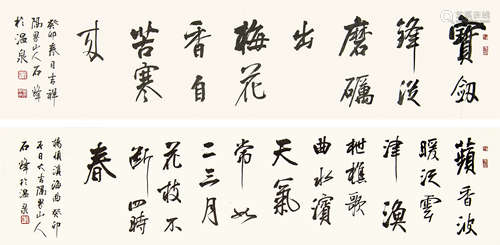 寶劔
鋒從
磨礪
出
梅花
香自
苦寒
来
癸卯春月吉祥
山人石峰
於温泉
蘋香波
暖泛雲
津漁
枻樵歌
曲水濱
天氣
常如
二三月
花枝不
斷四時
春
楊慎滇海曲癸卯
日大吉山人
石峰於温泉